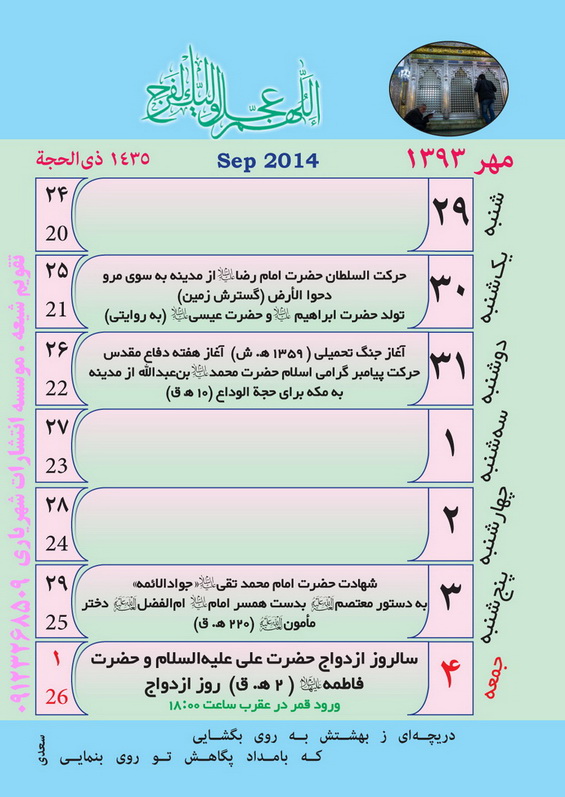 اللّهم عجل لولیک الفرج
مهر ۱۳۹۳
Sep 2014
۱۴۳۵ ذی‌الحجة
شنبه
۲۹
۲۴
20
یک‌شنبه
۳۰
حرکت السلطان حضرت امام رضا از مدینه به سوی مرو
دحوا الأرض (گسترش زمین)
تولد حضرت ابراهیم و حضرت عیسی (به روایتی)
۲۵
21
دوشنبه
۳۱
آغاز جنگ تحمیلی ( ۱۳۵۹ هـ. ش) آغاز هفته دفاع مقدس
حرکت پیامبر گرامی اسلام حضرت محمد بن‌عبدالله از مدینه
به مکه برای حجة الوداع (۱۰ هـ ق)
۲۶
22
سه‌شنبه
۱
۲۷
23
چهارشنبه
۲
۲۸
24
پنج‌شنبه
۳
شهادت حضرت امام محمد تقی «جوادالائمه»
به دستور معتصم بدست همسر امام ام‌الفضل دختر
مأمون (۲۲۰ هـ. ق)
۲۹
25
جمعه
۴
سالروز ازدواج حضرت علی علیه‌السلام و حضرت
فاطمه ( ۲ هـ. ق) روز ازدواج
ورود قمر در عقرب ساعت ۱۸:۰۰
۱
26
تقویم شیعه . موسسه انتشارات شهریاری ۰۹۱۲۳۲۶۸۵۰۹
دریچه‌ای ز بهشتش به روی بگشایی
که بامداد پگاهش تو روی بنمایی
سعدی